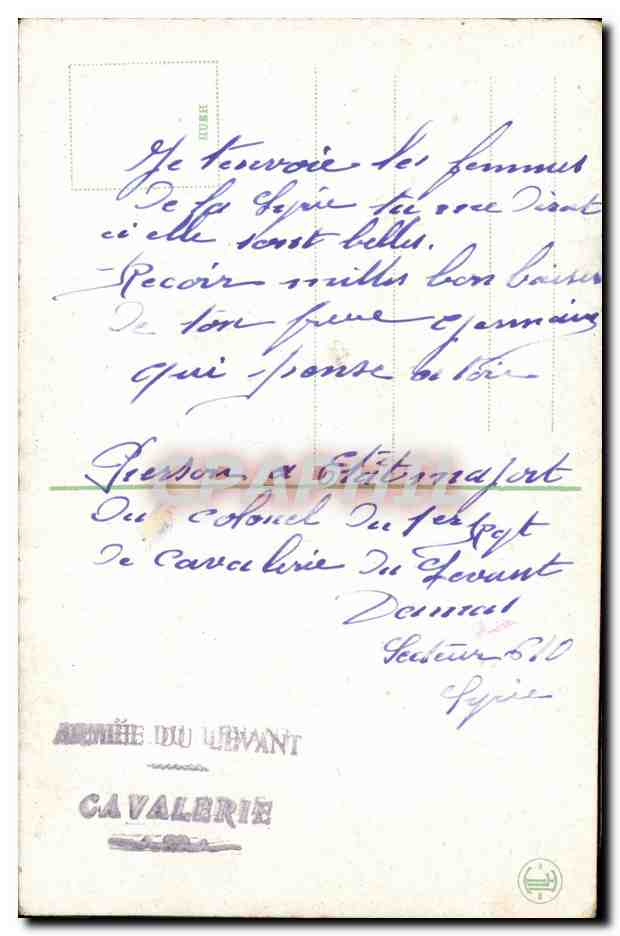 HURH
Je t'envoie les femmes
de la Syrie tu me dirat
ci elle sont belles.
Recoir milles bon baiser
de ton frere Germain
qui ponse a toie
Pierson a Etât major
du colonel du 1er Rgt
de cavalerie du Levant
Damas
Secteur 610
Syrie
ARMÉE DU LEVANT
CAVALERIE
CPAPHIL